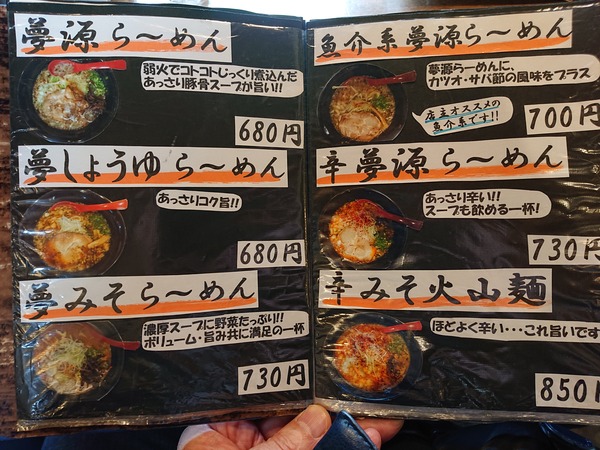 夢源ら〜めん
弱火でコトコトじっくり煮込んだ
あっさり豚骨スープが旨い!!
680円
夢しょうゆら〜めん
あっさりコク旨!!
680円
夢みそら〜めん
濃厚スープに野菜たっぷり!!
ボリューム・旨み共に満足の一杯
730円
魚介系夢源ら〜めん
夢源らーめんに、
カツオ・サバ節の風味をプラス
店主オススメの
魚介系です!!
700円
辛夢源ら〜めん
あっさり辛い!!
スープも飲める一杯!
730円
辛みそ火山麺
ほどよく辛い・・・これ旨いです
850円